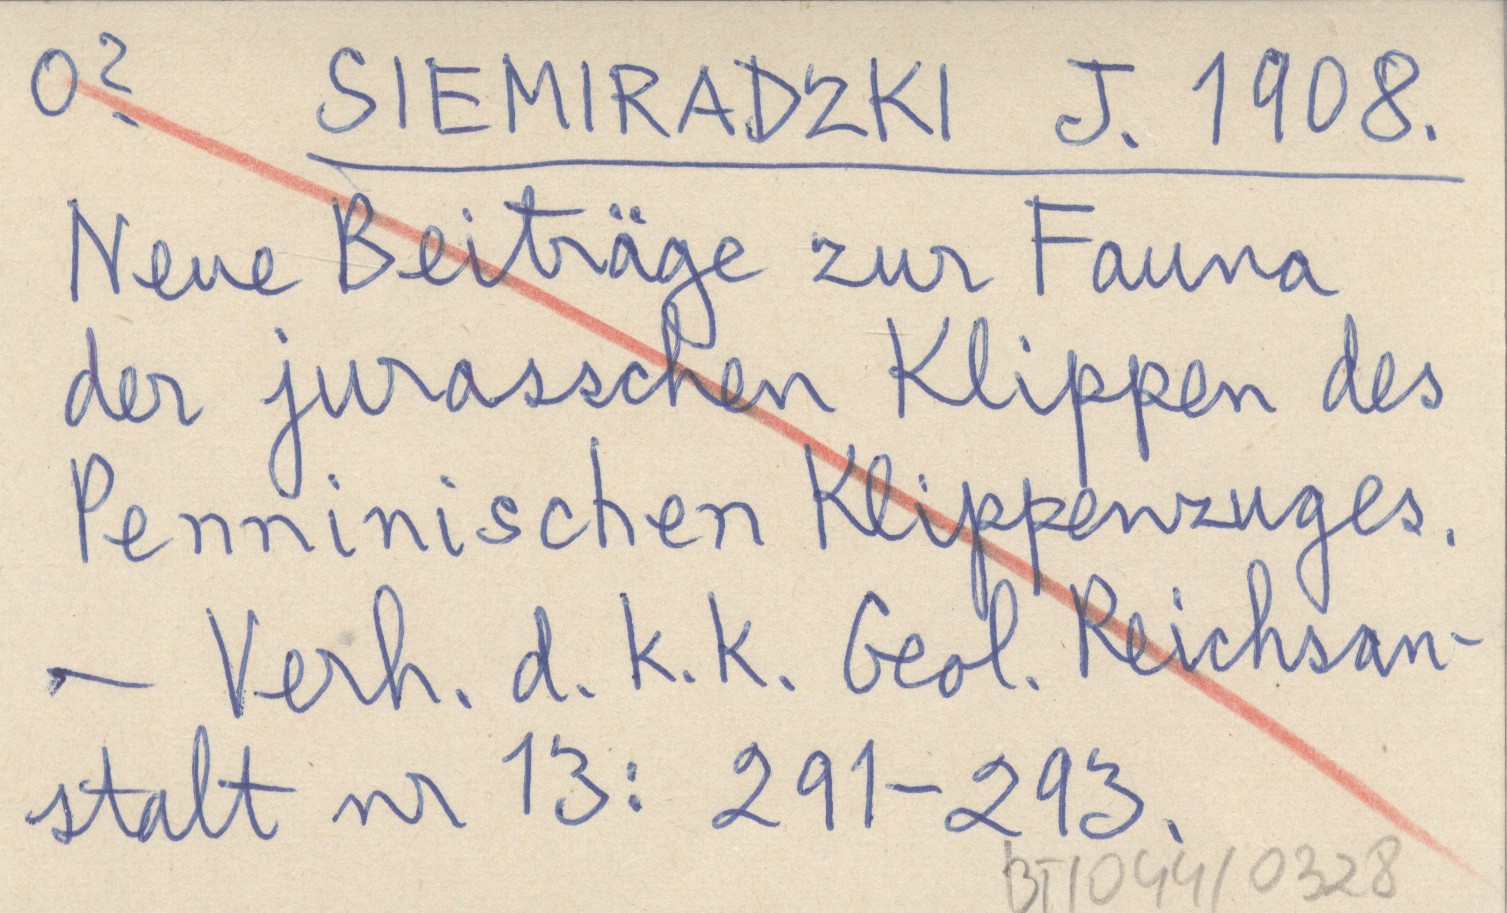 0? SIEMIRADZKI J. 1908.
Neue Beiträge zur Fauna
der jurasschen Klippen des
Penninischen Klippenzuges.
— Verh. d. k.k. Geol. Reichsan-
stalt nr 13: 291-293.
BT/044/0328